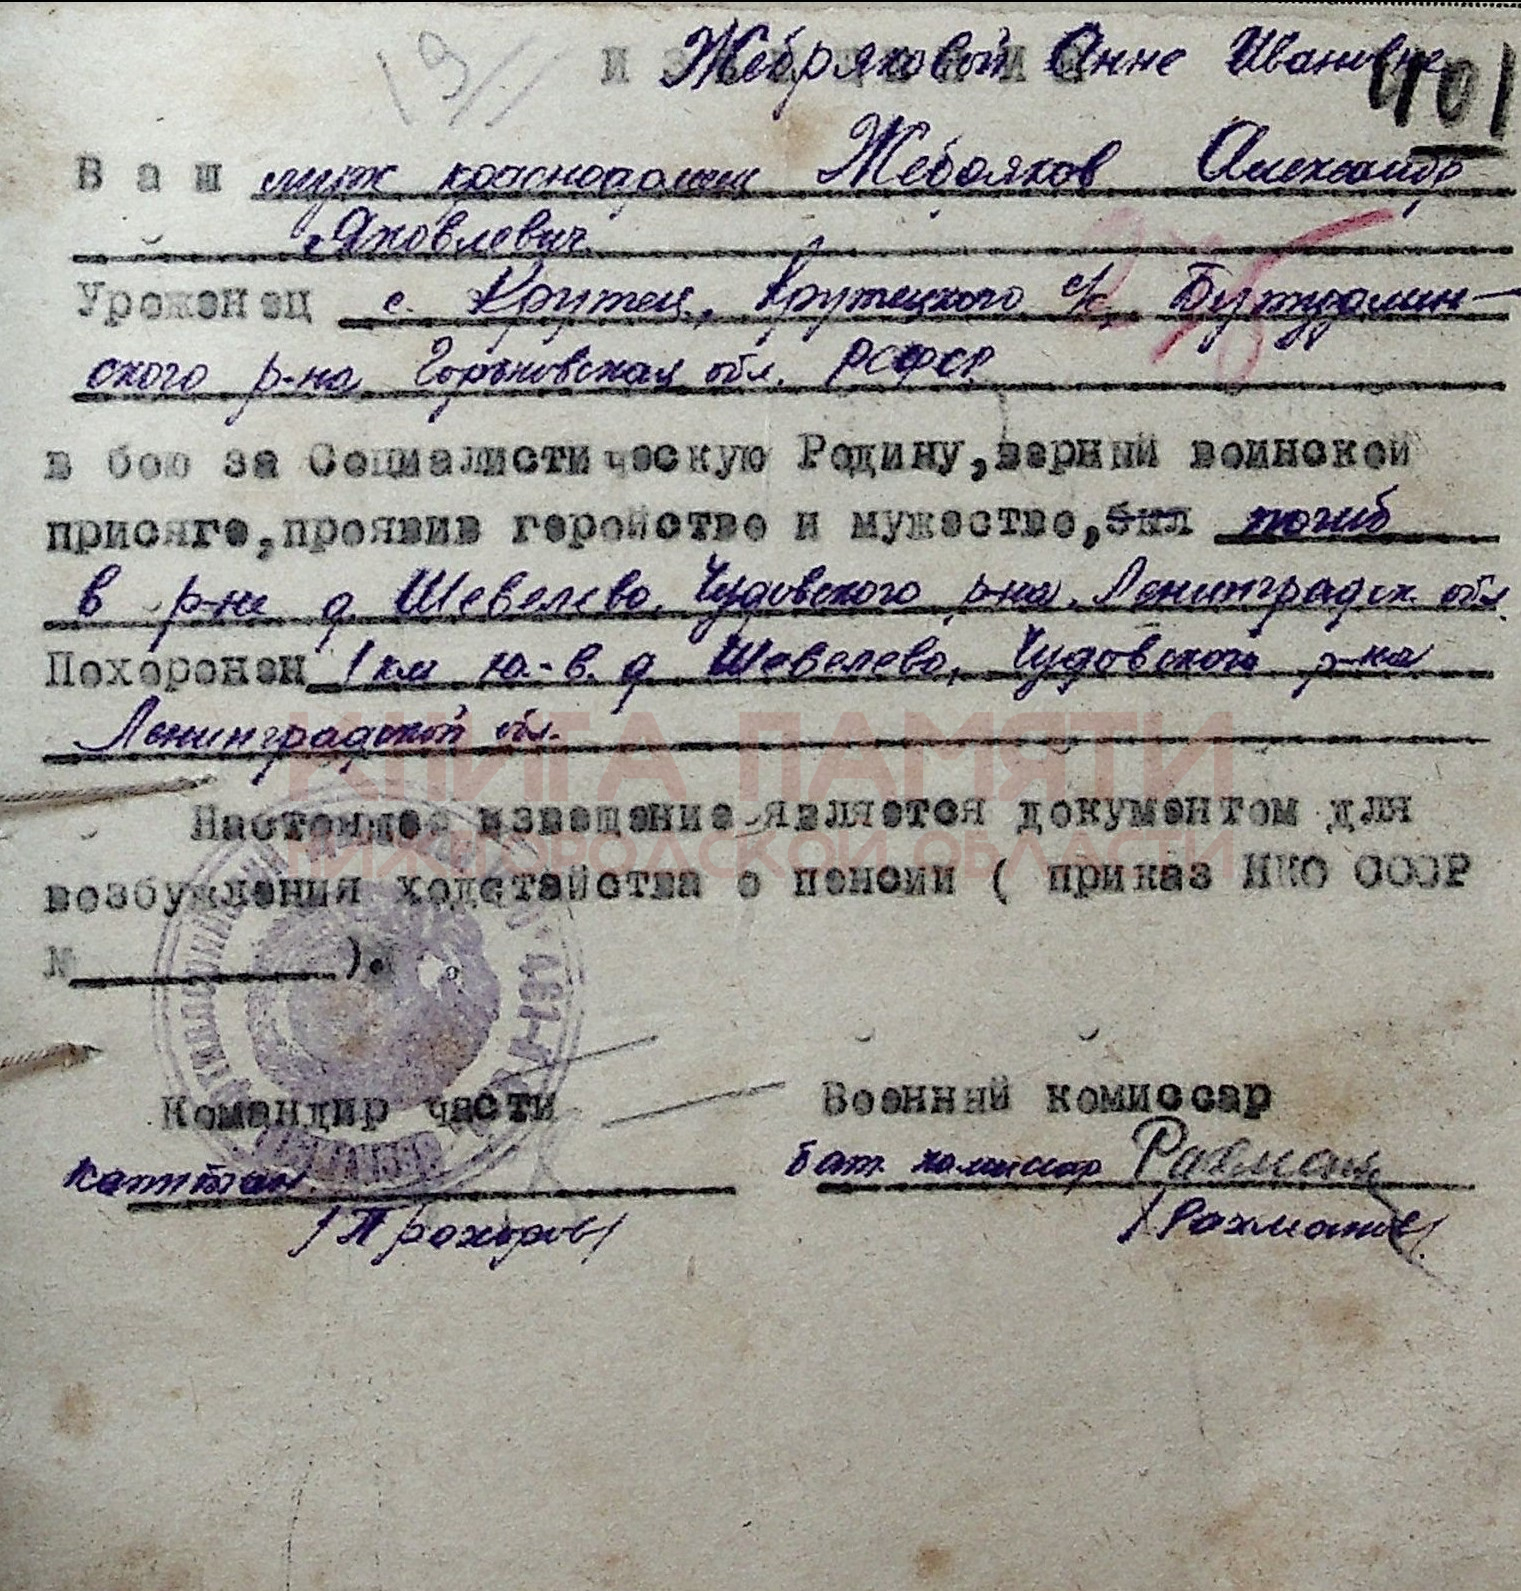 Жебряковой Анне Ивановне
401
Ваш муж красноармеец Жебряков Александр
Яковлевич
Уроженец с. Крутец, Крутецкого с/с, Бутурлин-
ского р-на Горьковская обл. РСФСР
в бою за Социалистическую Родину, верный воинской
присяге, проявив геройство и мужество, был погиб
в р-не д. Шевелево, Чудовского р-на, Ленинградск. обл.
Похоронен 1 км ю.-в. д. Шевелево, Чудовского р-на
Ленинградской обл.
КНИГА ПАМЯТИ
НИЖЕГОРОДСКОЙ ОБЛАСТИ
Настоящее извещение является документом для
возбуждения ходатайства о пенсии ( приказ НКО СССР
№ ).
Командир части Военный комиссар
капитан Бат. комиссар Рахман
/Прохоров/ /Рахманов/